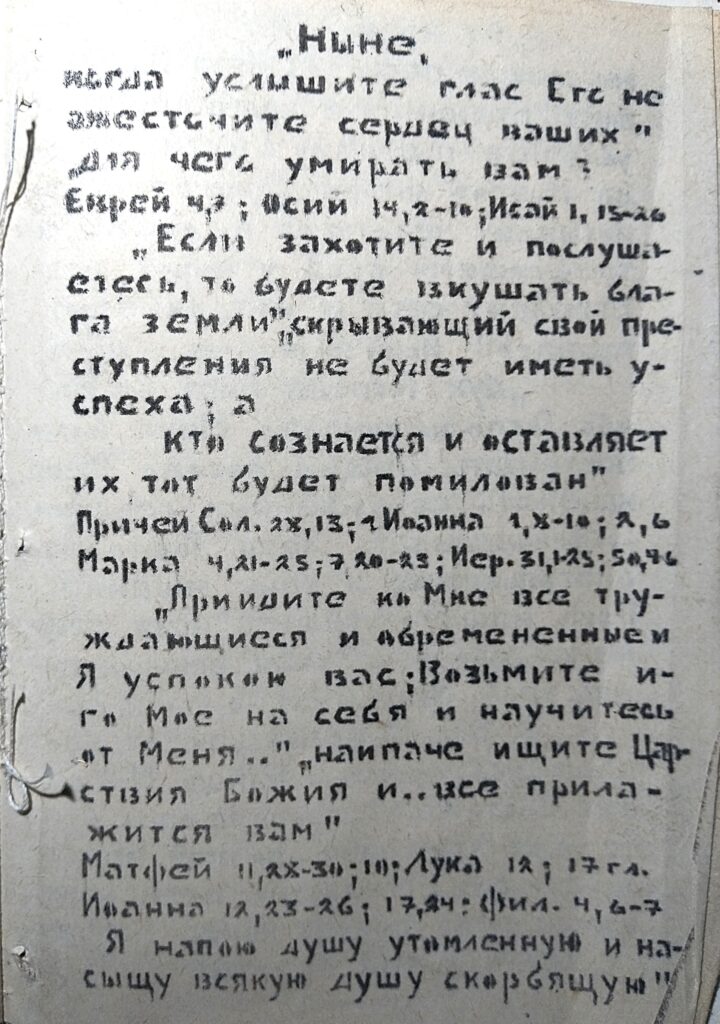 „Ныне,
когда услышите глас Его не
ожесточите сердец ваших"
„для чего умирать вам?
Еврей 4,7; Осий 14,2-10; Исай 1, 15-26
„Если захотите и послуша-
етесь, то будете вкушать бла-
га земли" „скрывающий свои пре-
ступления не будет иметь у-
спеха; а
кто сознается и оставляет
их тот будет помилован"
Притчей Сол. 28,13; 1 Иоанна 1,8-10; 2,6
Марка 4,21-25; 7,20-23; Иер. 31,1-25; 50,46
„Приидите ко Мне все тру-
ждающиеся и обремененные и
Я успокою вас; Возьмите и-
го Мое на себя и научитесь
от Меня.." „наипаче ищите Цар-
ствия Божия и.. все прила-
жится вам"
Матфей 11,28-30; 10; Лука 12; 17 гл.
Иоанна 12,23-26; 17,24: Фил. 4,6-7
Я напою душу утомленную и на-
сыщу всякую душу скорбящую"